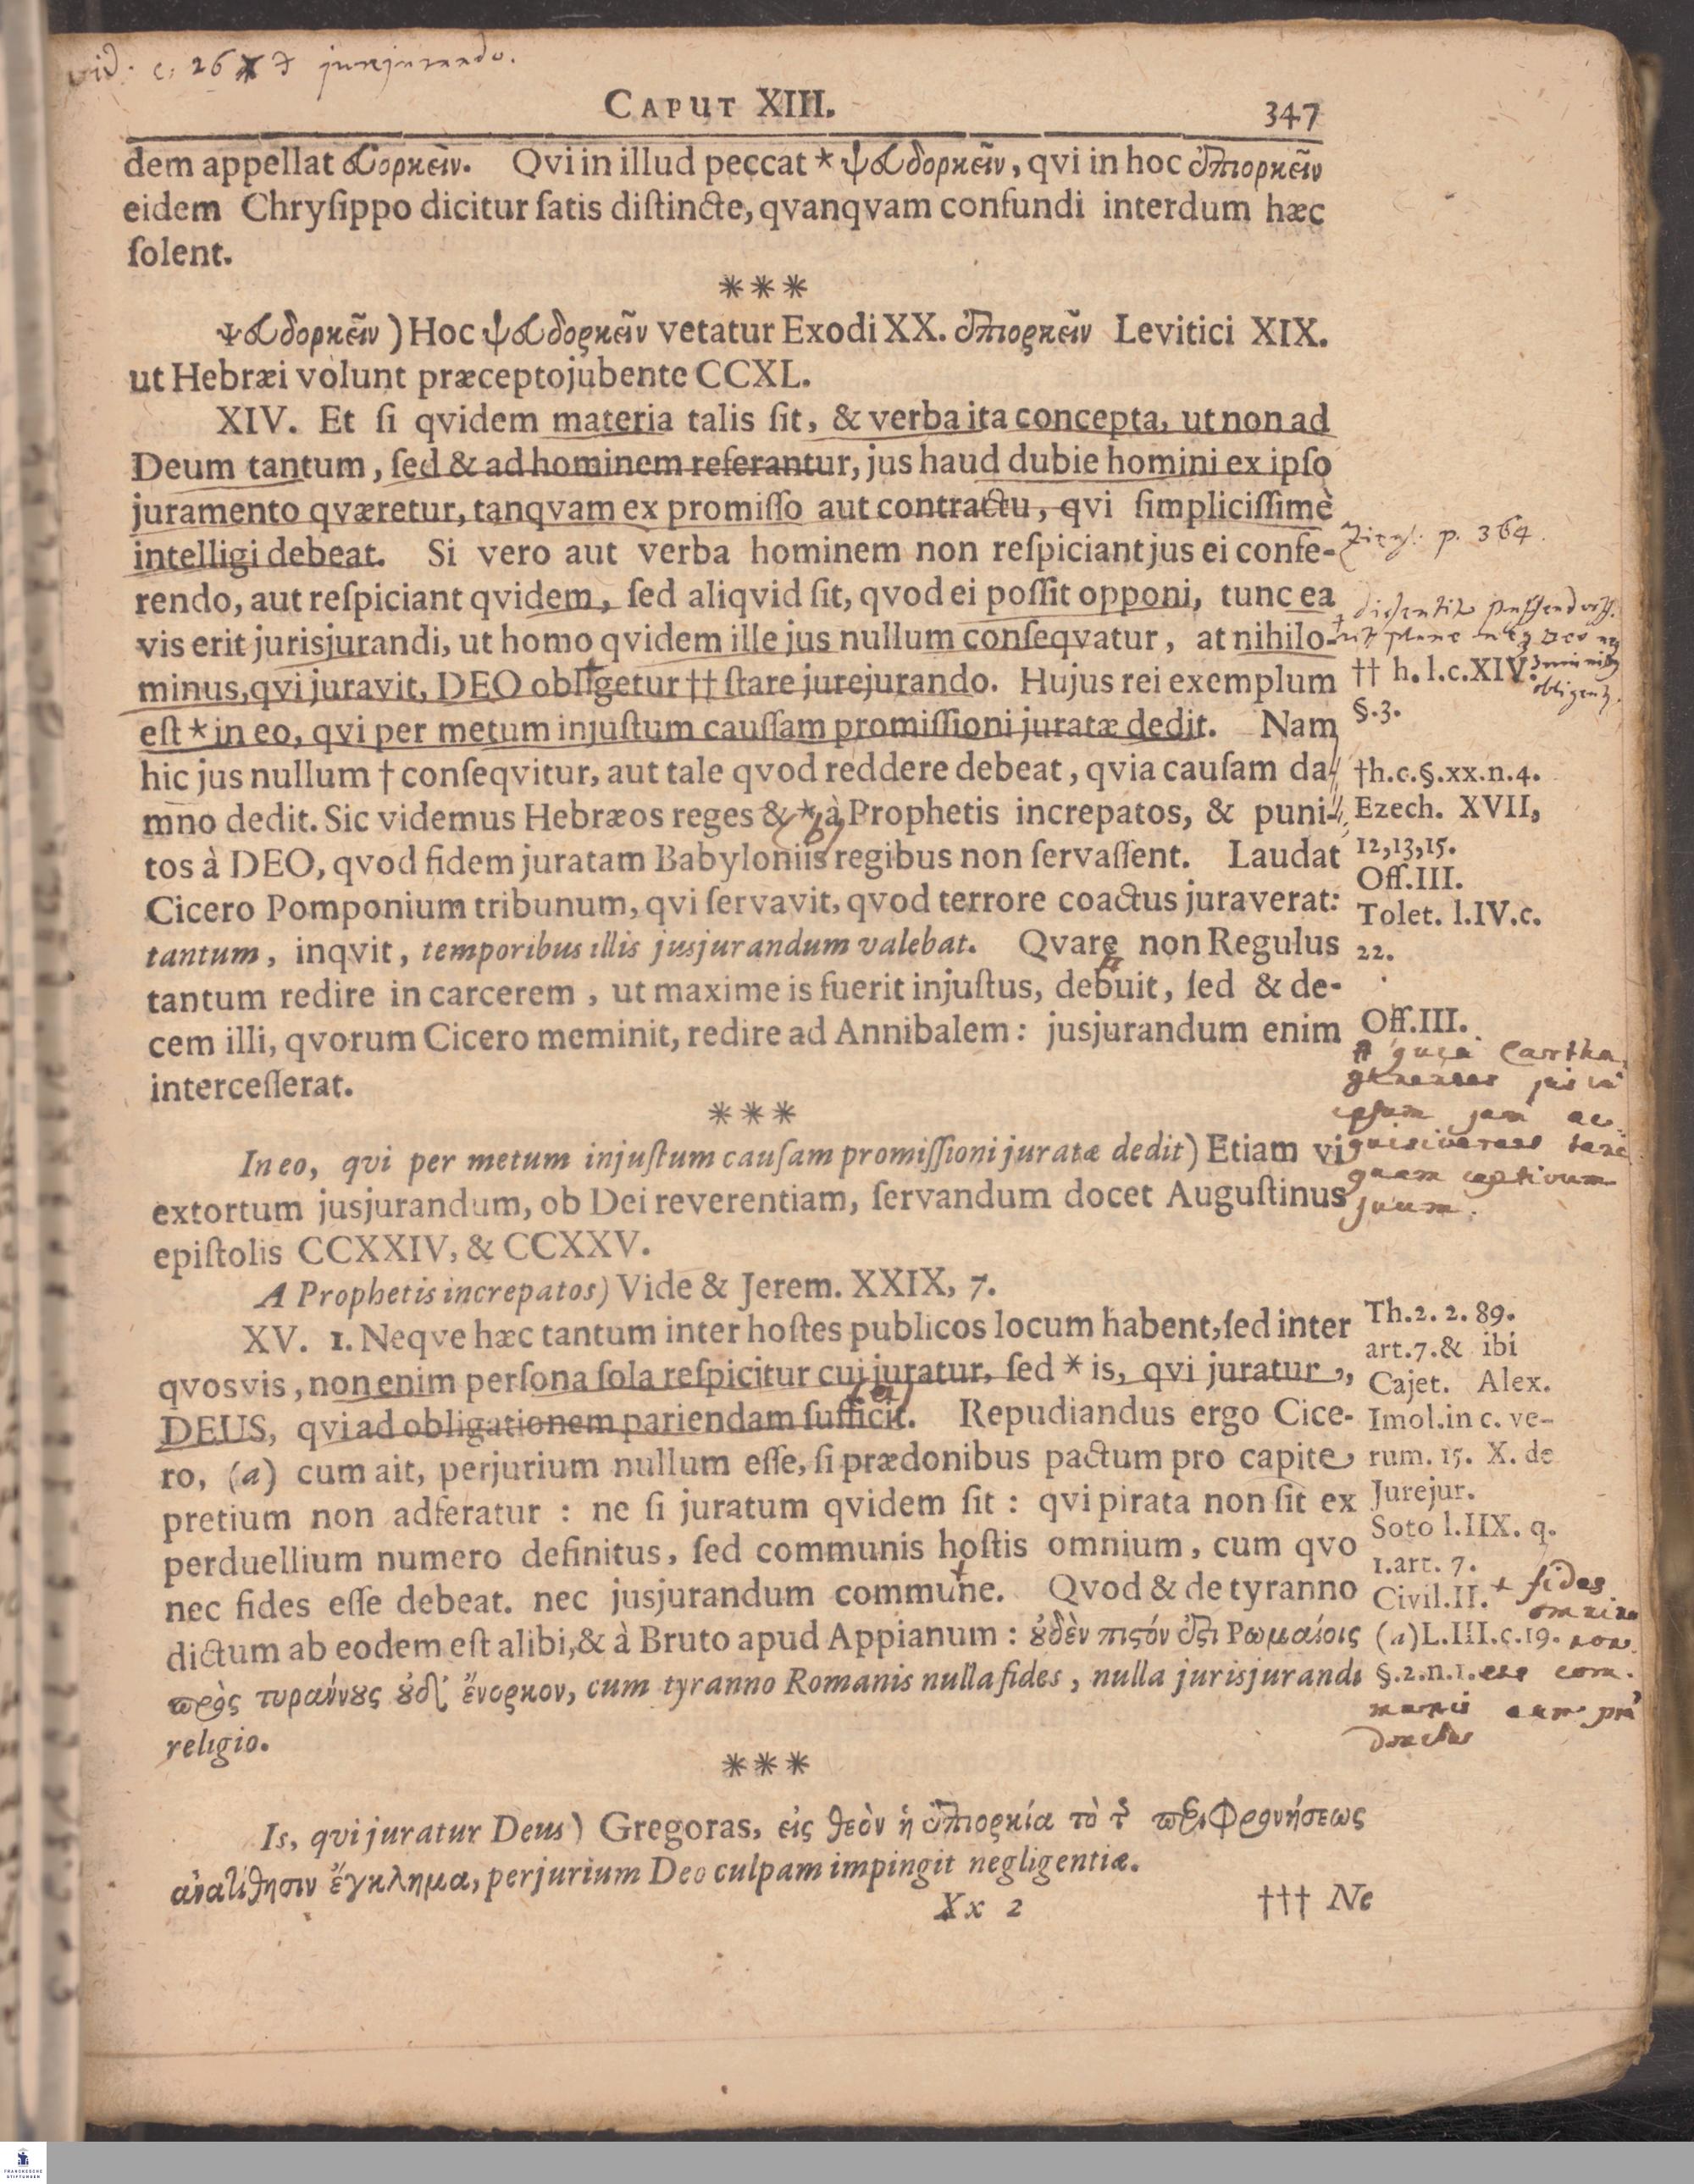 vid. c. 26 jurejurando.
CAPUT XIII. 347
dem appellat εὐορκεῖν. Qvi in illud peccat * ψευδορκεῖν, qvi in hoc ἐπιορκεῖν
eidem Chryſippo dicitur ſatis diſtincte, qvanqvam confundi interdum hæc
ſolent.
***
ψευδορκεῖν) Hoc ψευδορκεῖν vetatur Exodi XX. ἐπιορκεῖν Levitici XIX.
ut Hebræi volunt præcepto jubente CCXL.
XIV. Et ſi qvidem materia talis ſit, & verba ita concepta, ut non ad
Deum tantum, ſed & ad hominem referantur, jus haud dubie homini ex ipſo
juramento qværetur, tanqvam ex promiſſo aut contractu, qvi ſimpliciſſimè
intelligi debeat. Si vero aut verba hominem non reſpiciant jus ei confe-
rendo, aut reſpiciant qvidem, ſed aliqvid ſit, qvod ei poſſit opponi, tunc ea
vis erit jurisjurandi, ut homo qvidem ille jus nullum conſeqvatur, at nihilo-
minus, qvi juravit, DEO obligetur †† ſtare jurejurando. Hujus rei exemplum
eſt * in eo, qvi per metum injuſtum cauſſam promiſſioni juratæ dedit. Nam
hic jus nullum † conſeqvitur, aut tale qvod reddere debeat, qvia cauſam da-
mno dedit. Sic videmus Hebræos reges & * à Prophetis increpatos, & puni-
tos à DEO, qvod fidem juratam Babyloniis regibus non ſervaſſent. Laudat
Cicero Pomponium tribunum, qvi ſervavit, qvod terrore coactus juraverat:
tantum, inqvit, temporibus illis jusjurandum valebat. Qvare non Regulus
tantum redire in carcerem, ut maxime is fuerit injuſtus, debuit, ſed & de-
cem illi, qvorum Cicero meminit, redire ad Annibalem: jusjurandum enim
interceſſerat.
***
In eo, qvi per metum injuſtum cauſam promiſſioni juratæ dedit) Etiam vi
extortum jusjurandum, ob Dei reverentiam, ſervandum docet Auguſtinus
epiſtolis CCXXIV, & CCXXV.
A Prophetis increpatos) Vide & Jerem. XXIX, 7.
XV. 1. Neqve hæc tantum inter hoſtes publicos locum habent, ſed inter
qvosvis, non enim perſona ſola reſpicitur cui juratur, ſed * is, qvi juratur,
DEUS, qvi ad obligationem pariendam ſufficit. Repudiandus ergo Cice-
ro, (a) cum ait, perjurium nullum eſſe, ſi prædonibus pactum pro capite
pretium non adferatur: ne ſi juratum qvidem ſit: qvi pirata non ſit ex
perduellium numero definitus, ſed communis hoſtis omnium, cum qvo
nec fides eſſe debeat. nec jusjurandum commune. Qvod & de tyranno
dictum ab eodem eſt alibi, & à Bruto apud Appianum: οὐδὲν πιστόν ἐστι Ρωμαίοις
πρὸς τυράννους οὐδ' ἔνορκον, cum tyranno Romanis nulla fides, nulla jurisjurandi
religio.
***
Is, qvi juratur Deus) Gregoras, εἰς θεὸν ἡ ἐπιορκία τὸ τῆς περιφρονήσεως
ἀνατίθησιν ἔγκλημα, perjurium Deo culpam impingit negligentiæ.
Xx 2 ††† Ne
Ziegl. p. 364.
†† h. l.c.XIV.
§.3.
†h.c.§.xx.n.4.
Ezech. XVII,
12,13,15.
Off.III.
Tolet. l.IV.c.
22.
Off.III.
quia Cartha
ginenses jus in
ipsum jam ac
quisiverant tan
quam captivum
suum.
Th.2. 2. 89.
art.7.& ibi
Cajet. Alex.
Imol.in c. ve-
rum. 15. X. de
Jurejur.
Soto l.IIX. q.
1.art. 7.
Civil.II.
(a)L.III.c.19.
§.2.n.1.
+ fides
omnino
non
est com
munis cum præ